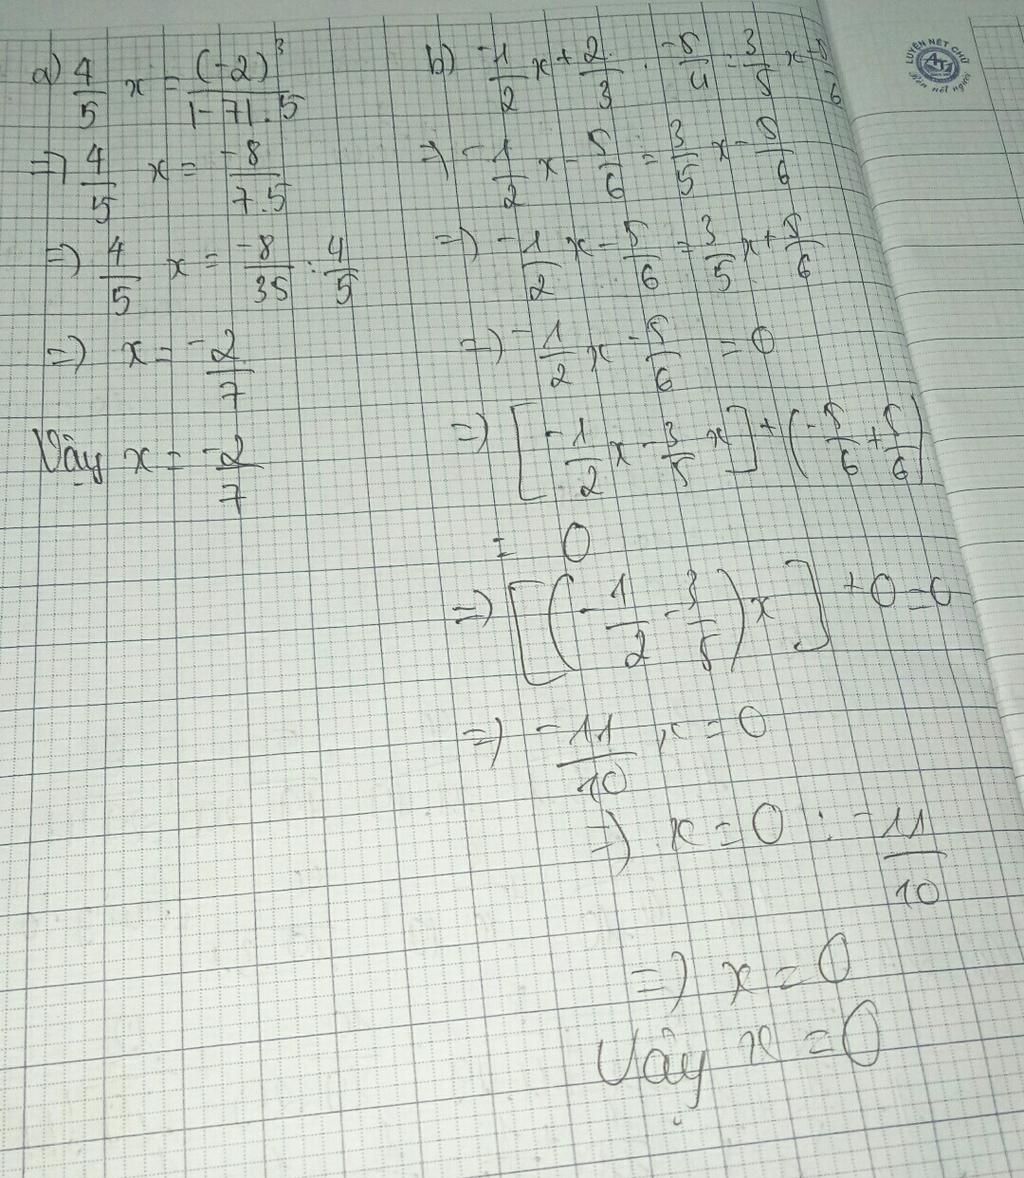 a) 4/5 x = (-2)³/|-7|.5
=> 4/5 x = -8/7.5
=> 4/5 x = -8/35 : 4/5
=> x = -2/7
Vậy x = -2/7
b) -1/2 x + 2/3 . -5/4 = 3/5 x - 5/6
=> -1/2 x - 5/6 = 3/5 x - 5/6
=> -1/2 x - 5/6 = 3/5 x + 5/6
=> -1/2 x - 5/6 = 0
=> [-1/2 x - 3/5 x] + (-5/6 + 5/6)
= 0
=> [(-1/2 - 3/5) x] + 0 = 0
=> -11/10 x = 0
=> x = 0 : -11/10
=> x = 0
Vậy x = 0
LUYỆN NÉT CHỮ
Rèn nết người